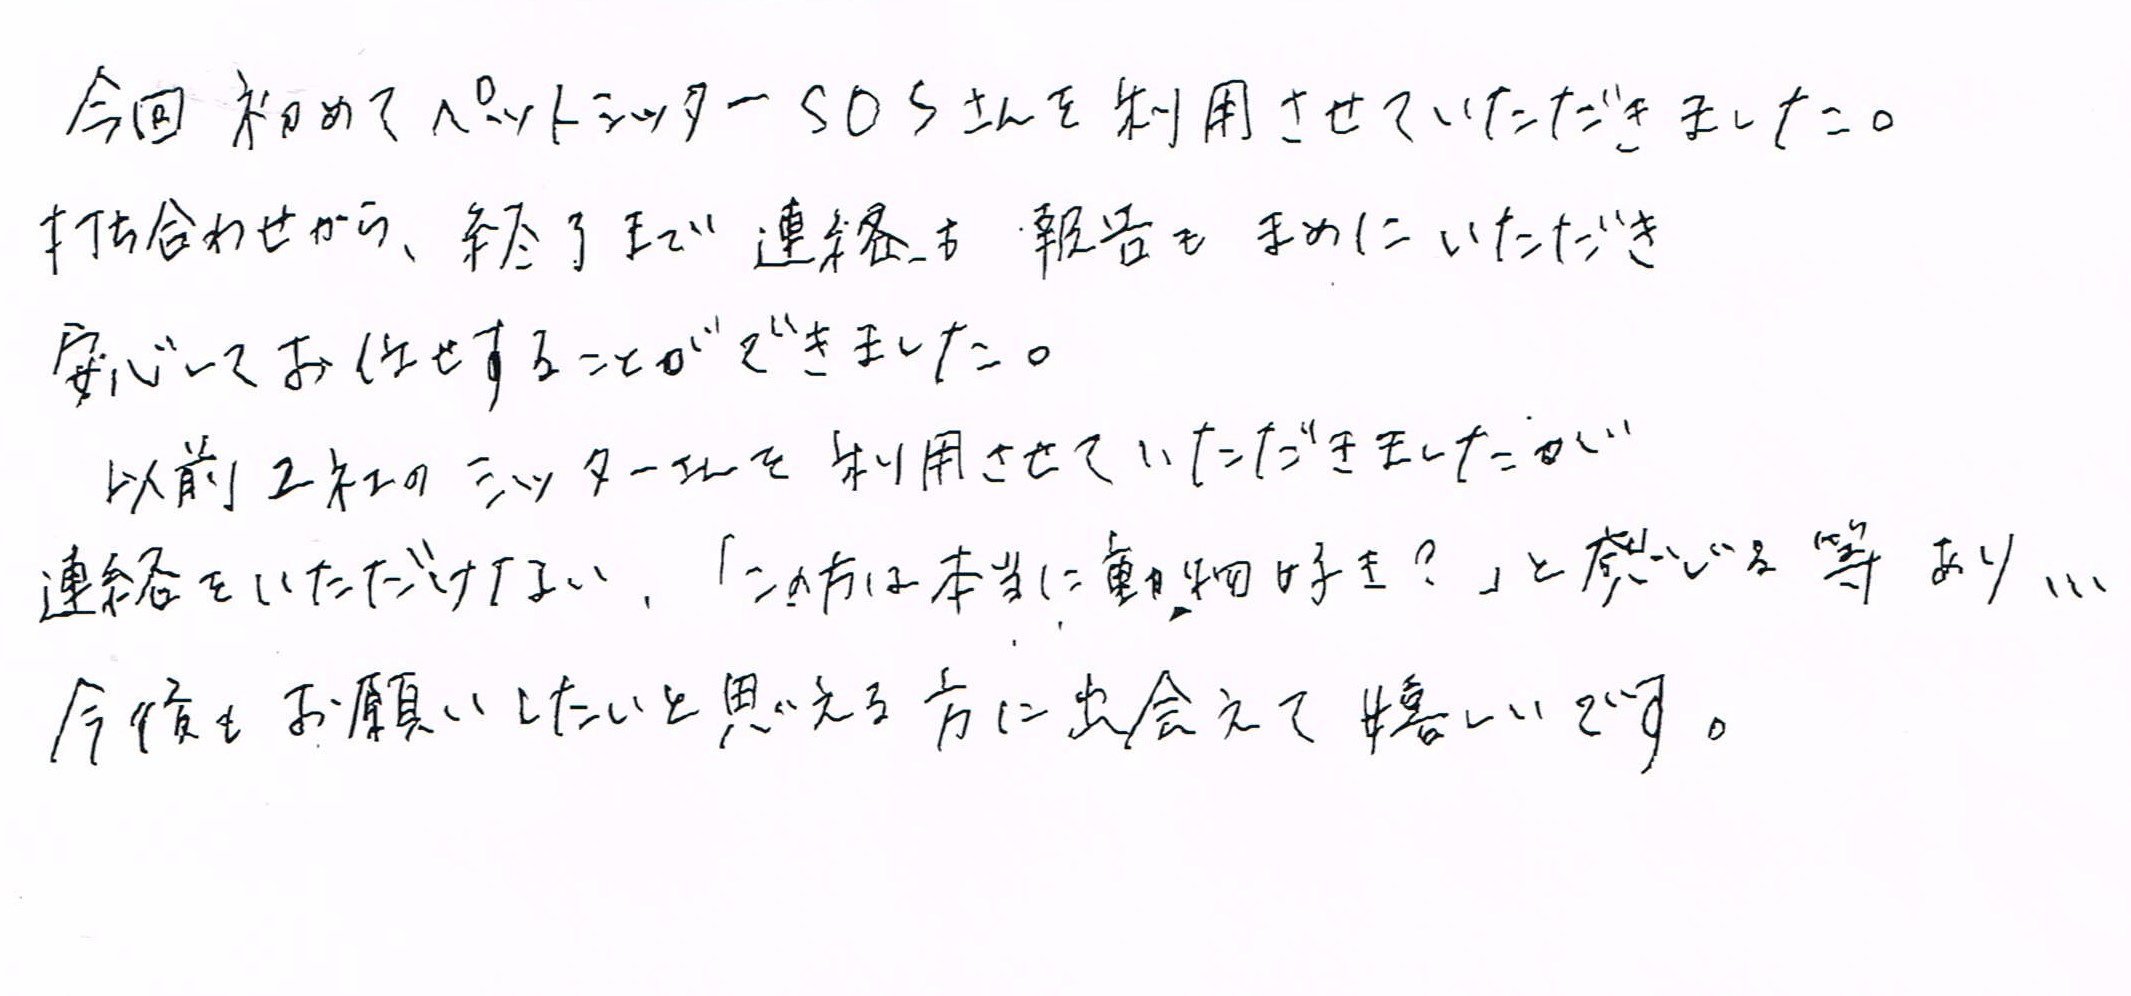 今回 初めてペットシッターSOSさんを利用させていただきました。
打ち合わせから、終了まで 連絡も 報告も まめにいただき
安心してお任せすることができました。
以前2社のシッターさんを利用させていただきましたが
連絡をいただけない、「この方は本当に動物好き？」と感じる等 あり…
今後もお願いしたいと思える方に出会えて嬉しいです。